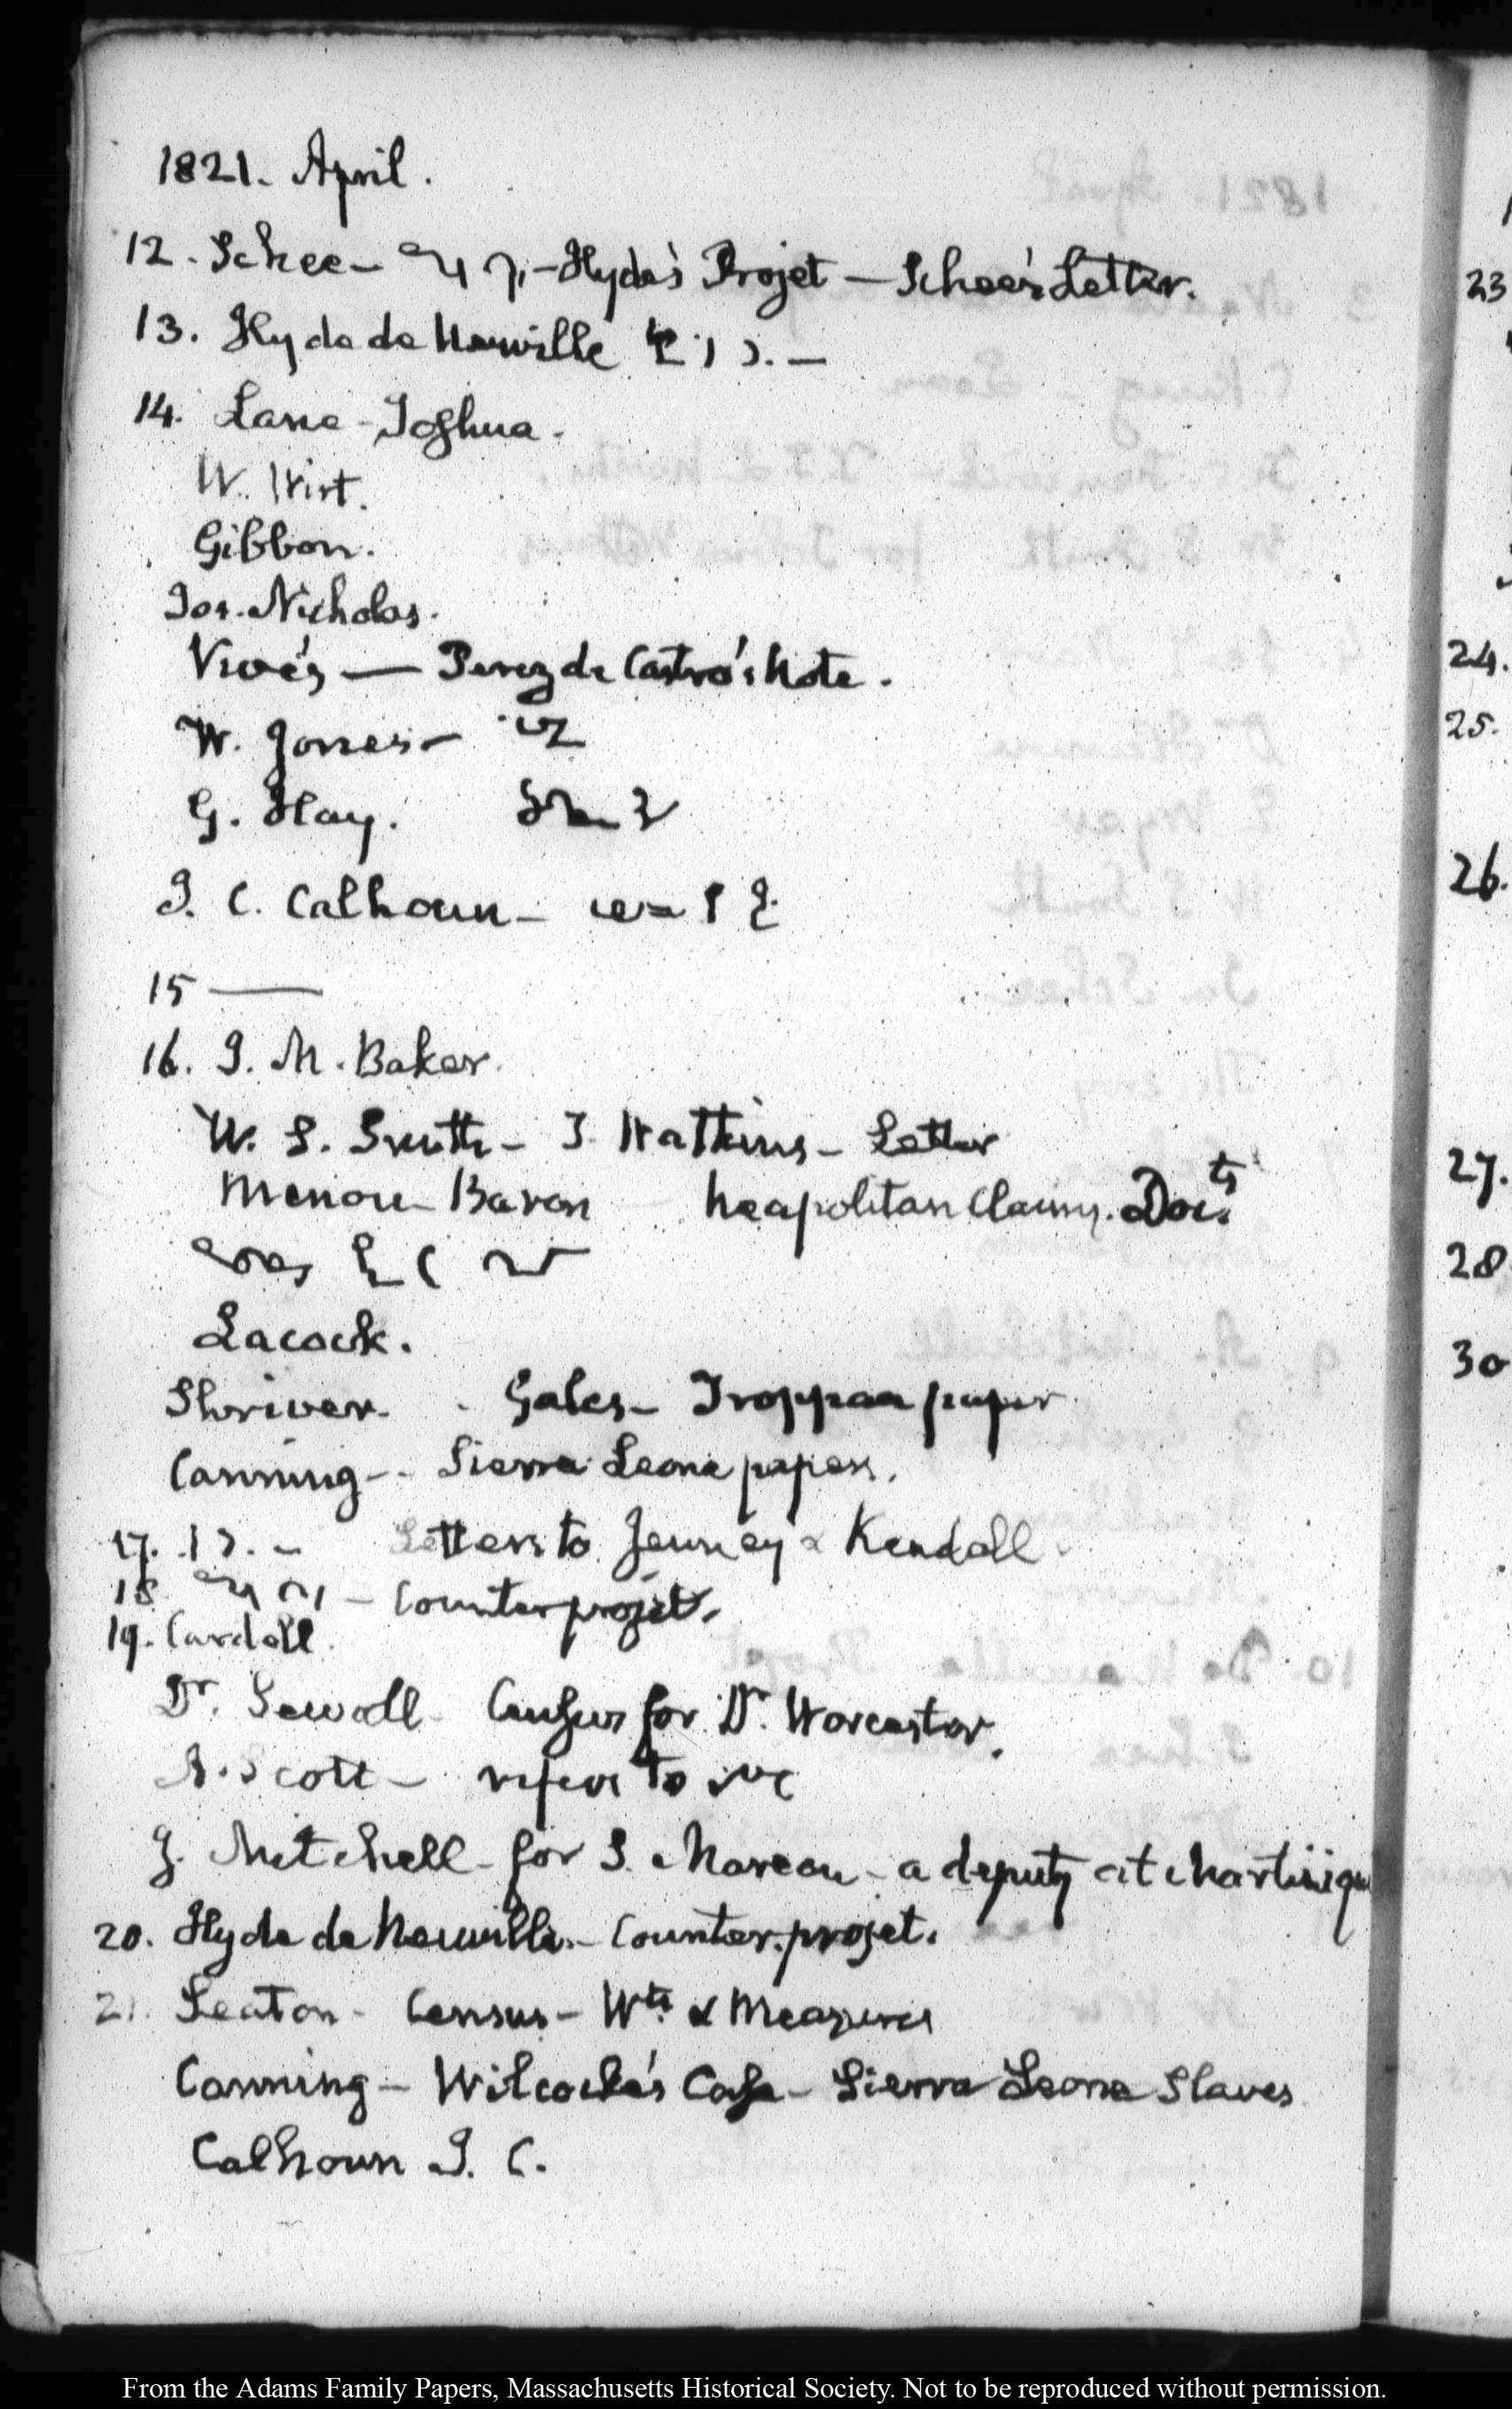 1821. April.
12. Schee - Hyde's Projet - Schee's Letter.
13. Hyde de Neuville
14. Lane - Joshua.
W. Wirt.
Gibbon.
Jos. Nicholas.
Vivés - Perez de Castro's Note.
W. Jones -
G. Hay.
J. C. Calhoun -
15 —
16. J. M. Baker.
W. S. Smith - T. Watkins - Letter
Menou - Baron Neapolitan Claims. Docts
Lacock.
Shriver. Gales - Troppau paper
Canning - Sierra Leone papers.
17. Letters to Jenney & Kendall.
18 - Counterprojet.
19. Cardell.
Dr. Sewall Census for Dr. Worcester.
A. Scott - refers to
J. Mitchell - for S. Moreau - a deputy at Martiniqu
20. Hyde de Neuville - Counter-projet.
21. Seaton - Census - Wts & Measures
Canning - Wilcocks's Case - Sierra Leone Slaves
Calhoun J. C.
23
24.
25.
26.
27.
28
30
From the Adams Family Papers, Massachusetts Historical Society. Not to be reproduced without permission.